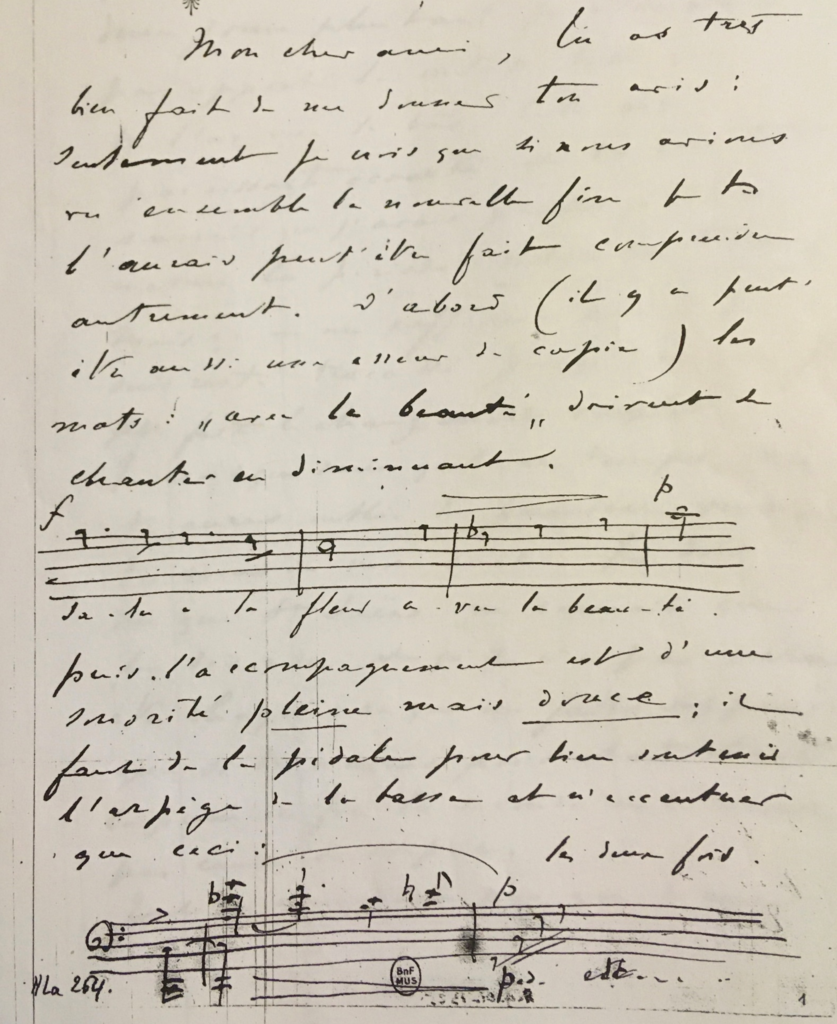 Mon cher ami, tu as très
bien fait de me donner ton avis :
seulement je crois que si nous avions
vu ensemble la nouvelle fin je te
l'aurais peut'être fait comprendre
autrement. D'abord (il y a peut'
être aussi une erreur de copie) les
mots : „avec la beauté„ doivent se
chanter en diminuant.
f p
De la à la fleur a-vec la beau-té.
puis l'accompagnement est d'une
sonorité pleine mais douce ; il
faut de la pédale pour bien soutenir
l'arpège de la basse et n'accentuer
que ceci :
les deux fois.
p
BnF
MUS
Nla 254.
1